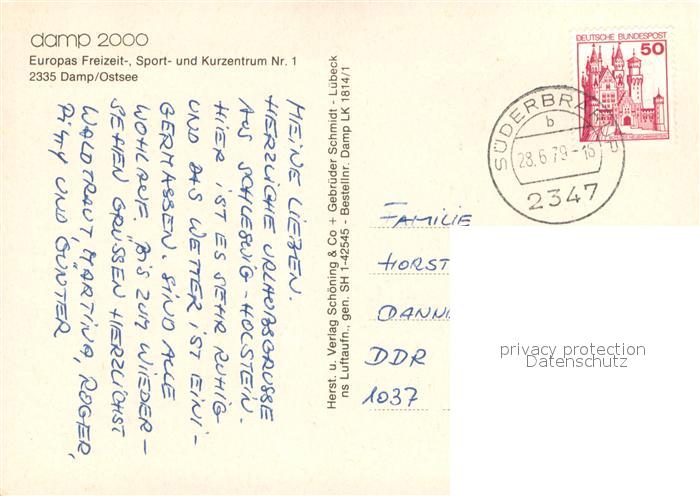 damp 2000
Europas Freizeit-, Sport- und Kurzentrum Nr. 1
2335 Damp/Ostsee
MEINE LIEBEN.
HERZLICHE URLAUBSGRÜSSE
AUS SCHLESWIG-HOLSTEIN.
HIER IST ES SEHR RUHIG
UND DAS WETTER IST EINI-
GERMASSEN. SIND ALLE
WOHLAUF. BIS ZUM WIEDER-
SEHEN GRÜSSEN HERZLICHST
WALDTRAUT, MARTINA, ROGER,
UND GÜNTER
Herst. u. Verlag Schöning & Co + Gebrüder Schmidt - Lübeck
ns Luftaufn., gen. SH 1-42545 - Bestellnr. Damp LK 1814/1
DEUTSCHE BUNDESPOST
50
b
28.6.79
2347
FAMILIE
HORST
DDR
1037
privacy protection
Datenschutz